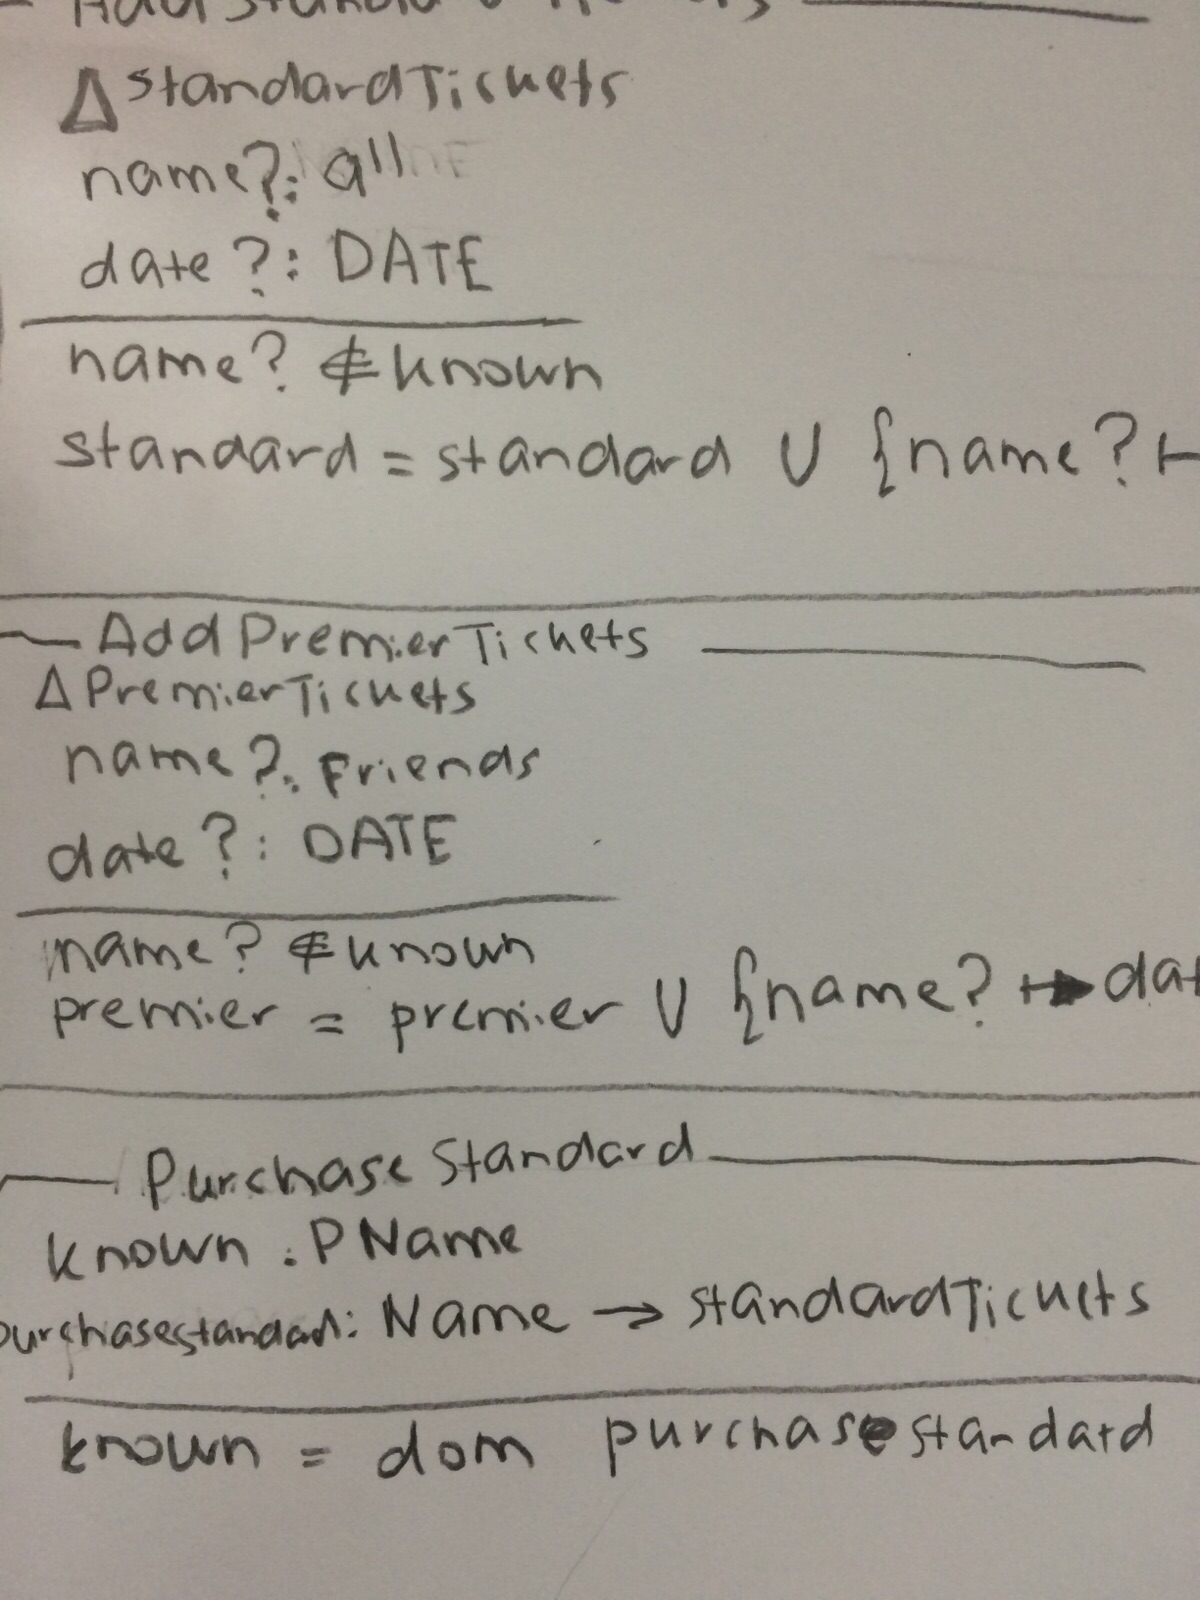 Δ standardTickets
name?: all
date?: DATE
name? ∉ known
standard = standard ∪ {name? ↦
AddPremierTickets
Δ PremierTickets
name?: Friends
date?: DATE
name? ∉ known
premier = premier ∪ {name? ↦ dat
Purchase Standard
known : PName
purchasestandard: Name → standardTickets
known = dom purchasestandard